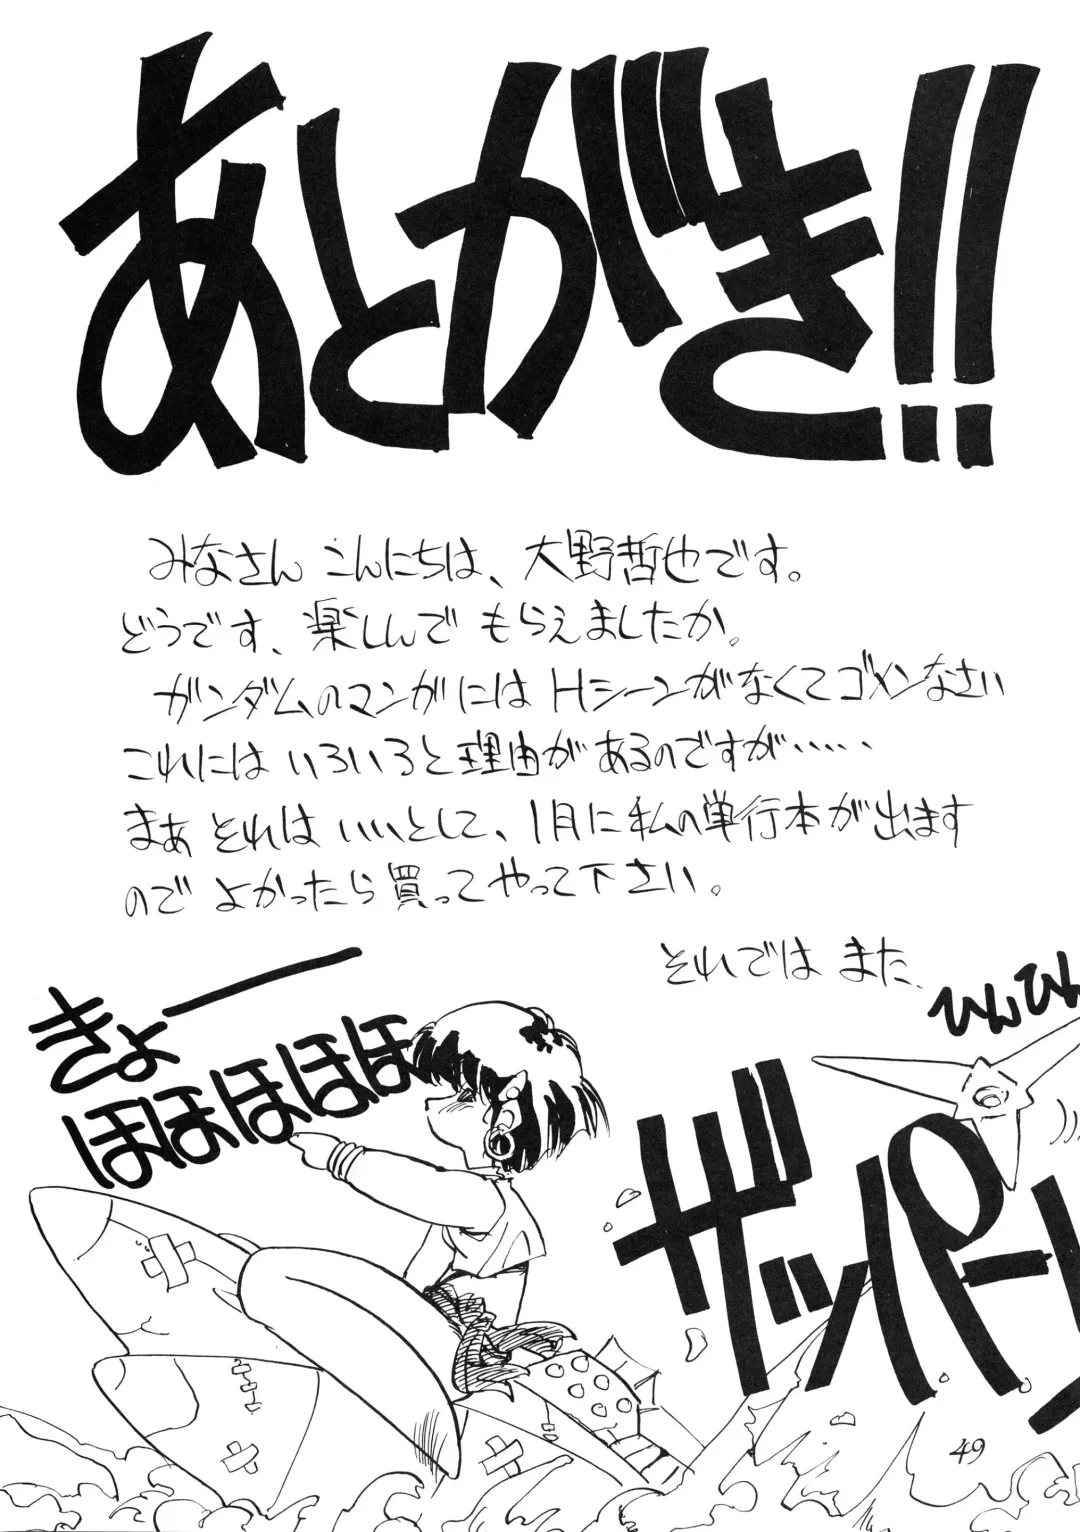 あとがき!!
みなさん こんにちは、大野哲也です。
どうです、楽しんで もらえましたか。
ガンダムのマンガには Hシーンがなくてゴメンなさい
これには いろいろと理由があるのですが……
まあ それは いいとして、1月に私の単行本が出ます
ので よかったら買ってやって下さい。
それでは また.
ひんひん
きょー
ほほほほほ
ザッパーン
49